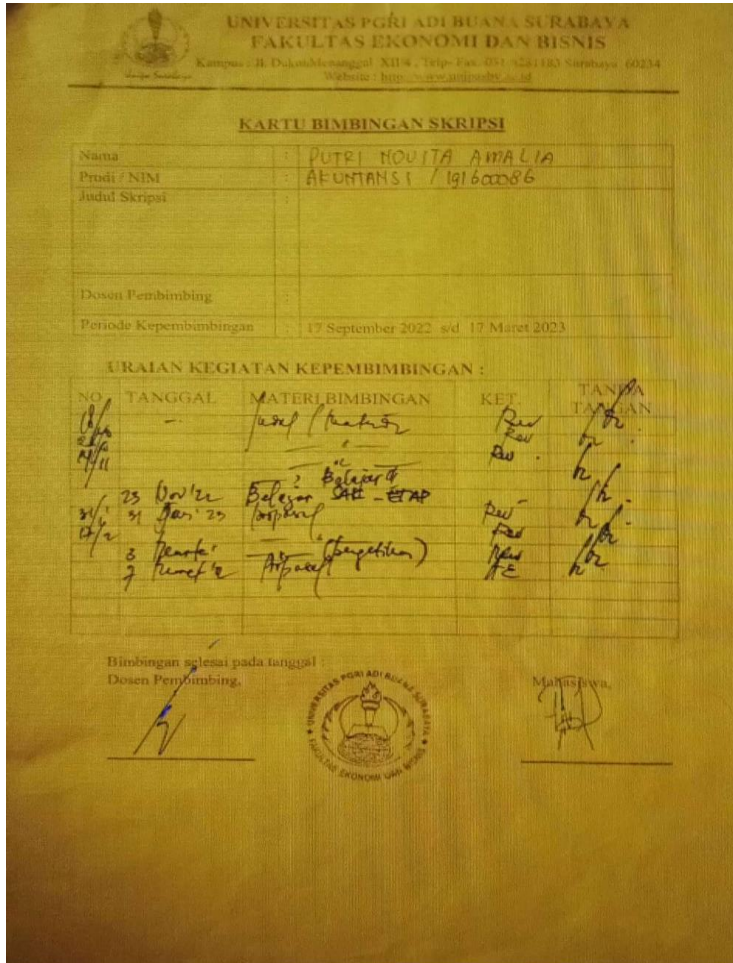 UNIVERSITAS PGRI ADI BUANA SURABAYA
FAKULTAS EKONOMI DAN BISNIS
Kampus : Jl. Dukuh Menanggal XII/4, Telp- Fax. 031 8281183 Surabaya 60234
Website : http://www.unipasby.ac.id
KARTU BIMBINGAN SKRIPSI
Nama : PUTRI NOVITA AMALIA
Prodi / NIM : AKUNTANSI / 191600086
Judul Skripsi :
Dosen Pembimbing :
Periode Kepembimbingan : 17 September 2022 s/d 17 Maret 2023
URAIAN KEGIATAN KEPEMBIMBINGAN :
NO TANGGAL MATERI BIMBINGAN KET. TANDA TANGAN
Judul / Rev
Rev
Rev
Belajar
23 Nov'22 Belajar SAK - ETAP
31 Jan'23 Proposal Rev
Rev
3 Rev
7 Proposal
Bimbingan selesai pada tanggal :
Dosen Pembimbing, Mahasiswa,
UNIVERSITAS PGRI ADI BUANA SURABAYA
FAKULTAS EKONOMI DAN BISNIS